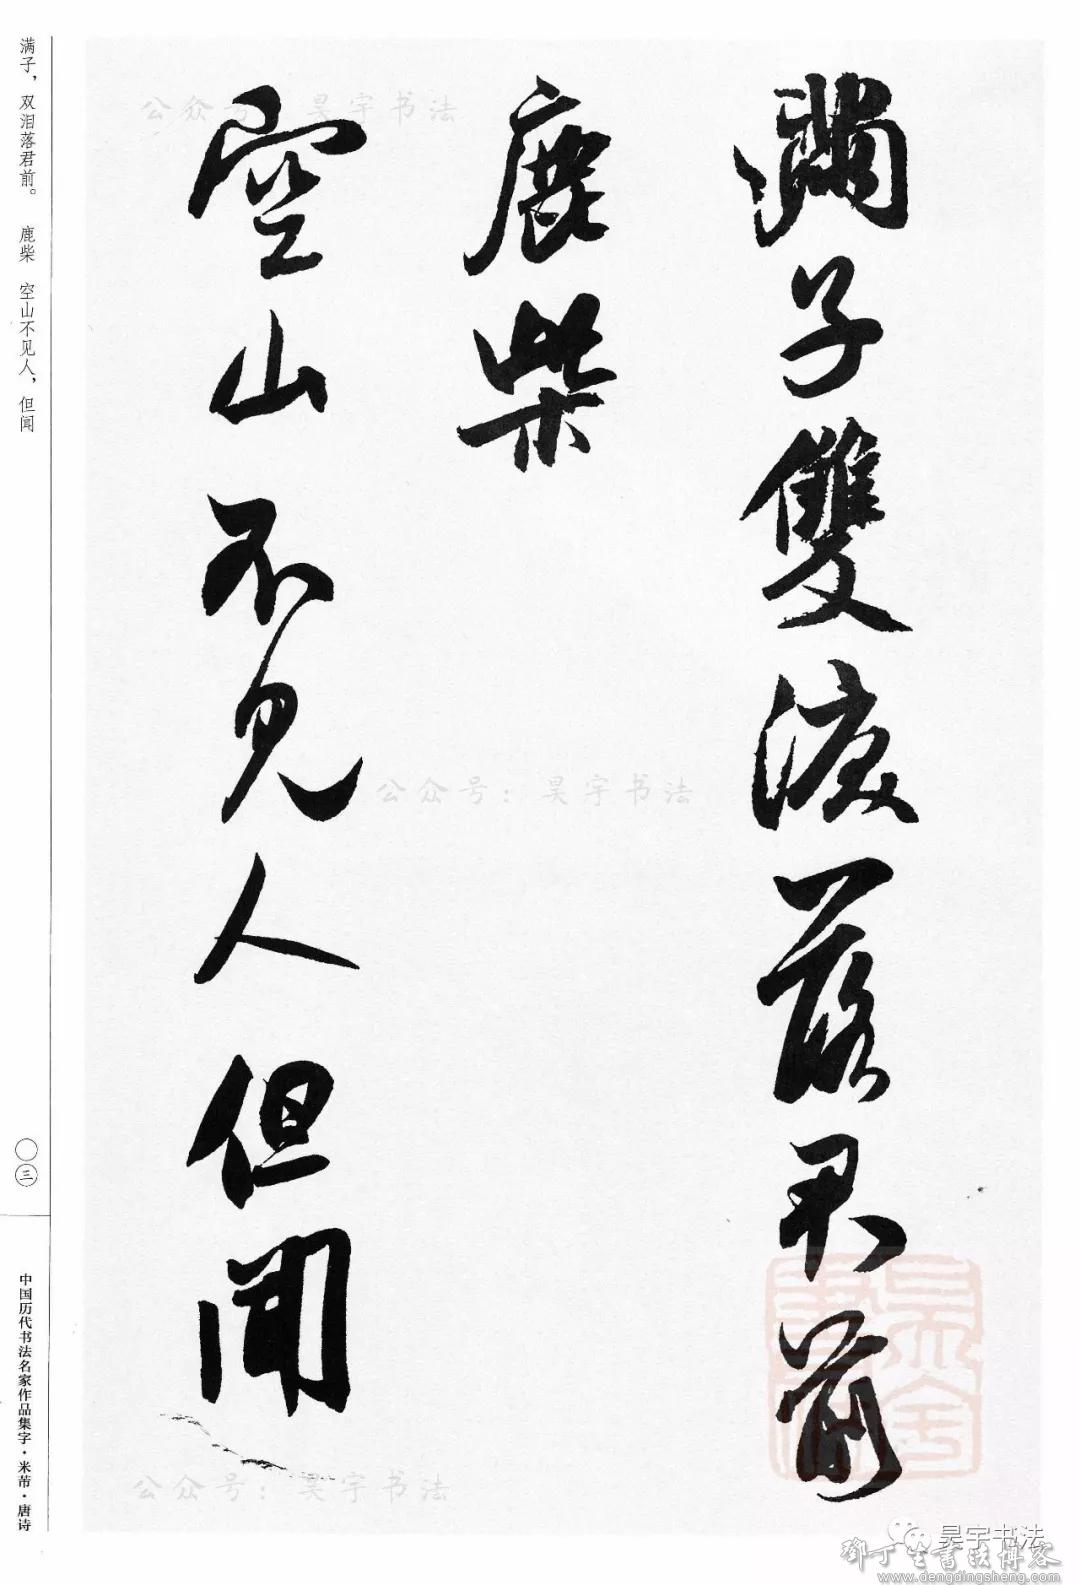 滿子雙淚落君前
鹿柴
空山不見人但聞
满子，双泪落君前。 鹿柴 空山不见人，但闻
〇三
中国历代书法名家作品集字·米芾·唐诗
公众号：昊宇书法
公众号：昊宇书法
公众号：昊宇书法
昊宇书法
鄧丁生書法博客
www.dengdingsheng.com